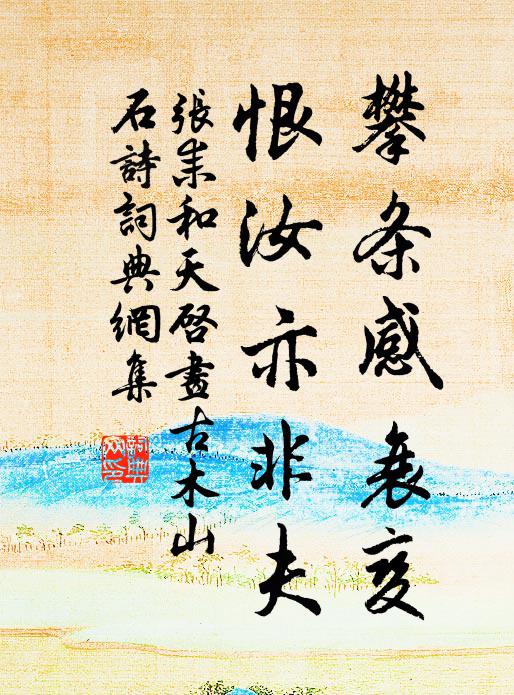 攀条感衰变
恨汝亦非夫
張耒和天啓畫古木山
石詩詞典網集